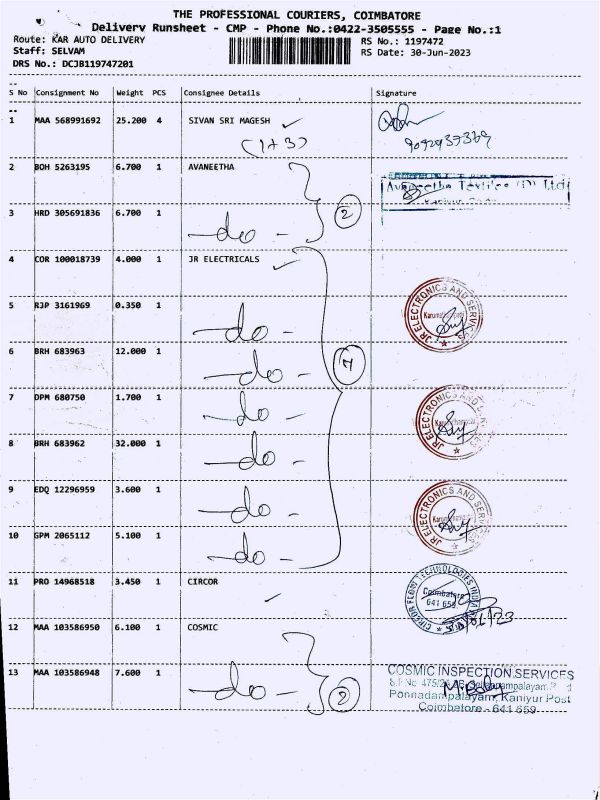 THE PROFESSIONAL COURIERS, COIMBATORE
Delivery Runsheet - CMP - Phone No.:0422-3505555 - Page No.:1
Route: KAR AUTO DELIVERY RS No.: 1197472
Staff: SELVAM RS Date: 30-Jun-2023
DRS No.: DCJB119747201
S No Consignment No Weight PCS Consignee Details Signature
1 MAA 568991692 25.200 4 SIVAN SRI MAGESH
(1+3)
2 BOH 5263195 6.700 1 AVANEETHA
Avaneetha Textiles (P) Ltd
2
3 HRD 305691836 6.700 1 -do-
4 COR 100018739 4.000 1 JR ELECTRICALS
JR ELECTRONICS AND SERVICES
5 RJP 3161969 0.350 1 -do-
6 BRH 683963 12.000 1 -do-
7
7 DPM 680750 1.700 1 -do-
JR ELECTRONICS AND SERVICES
8 BRH 683962 32.000 1 -do-
9 EDQ 12296959 3.600 1 -do-
JR ELECTRONICS AND SERVICES
10 GPM 2065112 5.100 1 -do-
11 PRO 14968518 3.450 1 CIRCOR
CIRCOR FLOW TECHNOLOGIES INDIA
Coimbatore
641 659
12 MAA 103586950 6.100 1 COSMIC
13 MAA 103586948 7.600 1 -do-
2
COSMIC INSPECTION SERVICES
Ponnadampalayam, Kaniyur Post
Coimbatore - 641 659